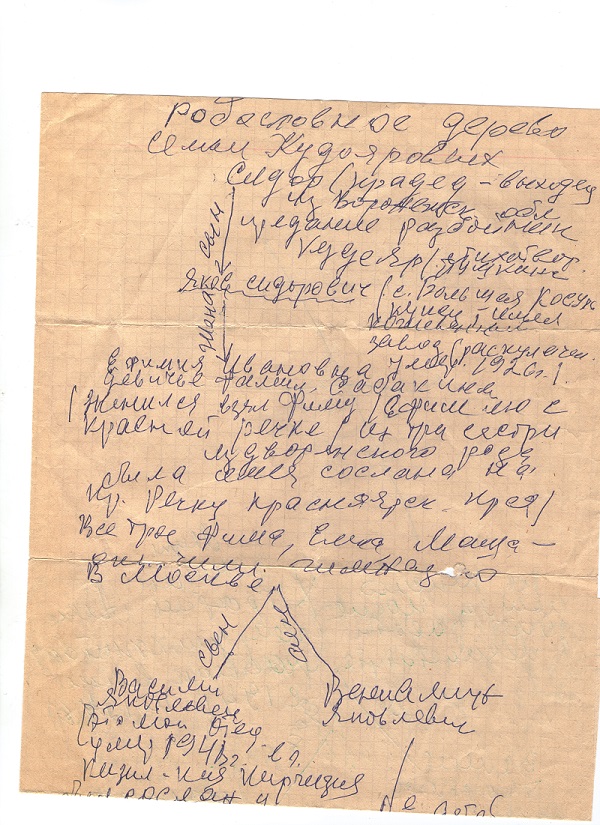 родословное дерево
семьи Кудояровых
Сидор (прадед - выходец
из Воронежск обл
предание разбойник
Кудеяр (стихотвор.
Пушкина
сын
Яков Сидорович (с. Большая Косуль
купец имел
кожевенный
завод (раскулачен.
жена
Ефимия Ивановна умер. 1926г.)
девичье фамил. Сабакина
(женился взял Фиму (Ефимию с
Красной речке (их три сестры
из дворянского рода
была семья сослана на
Кр. речку Красноярск. края)
Все трое Фима, Елка, Маша -
окончили гимназию
в Москве
сын
сын
Василий
Яковлевич
(это мой отец
умер 1941г. в г.
Кизил-Кия Киргизия
Вениаминъ
Яковлевич
был сослан